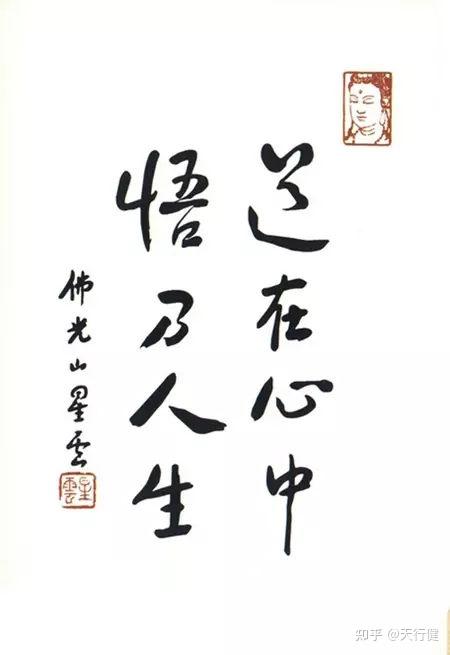 道在心中
悟乃人生
佛光山星雲
星雲
知乎 @天行健